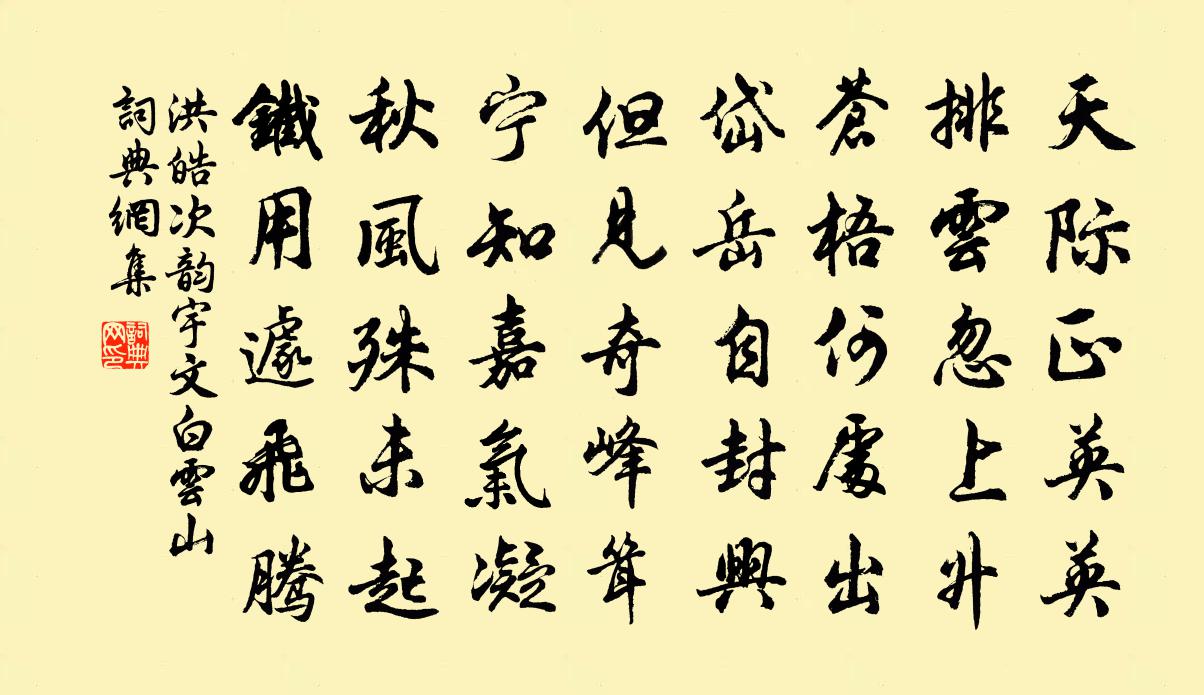 天际正英英
排雲忽上升
蒼梧何處出
岱岳自封興
但見奇峰耸
宁知嘉氣凝
秋風殊未起
鐵用遽飛騰
洪皓次韵宇文白雲山
詞典網集
詞典网印